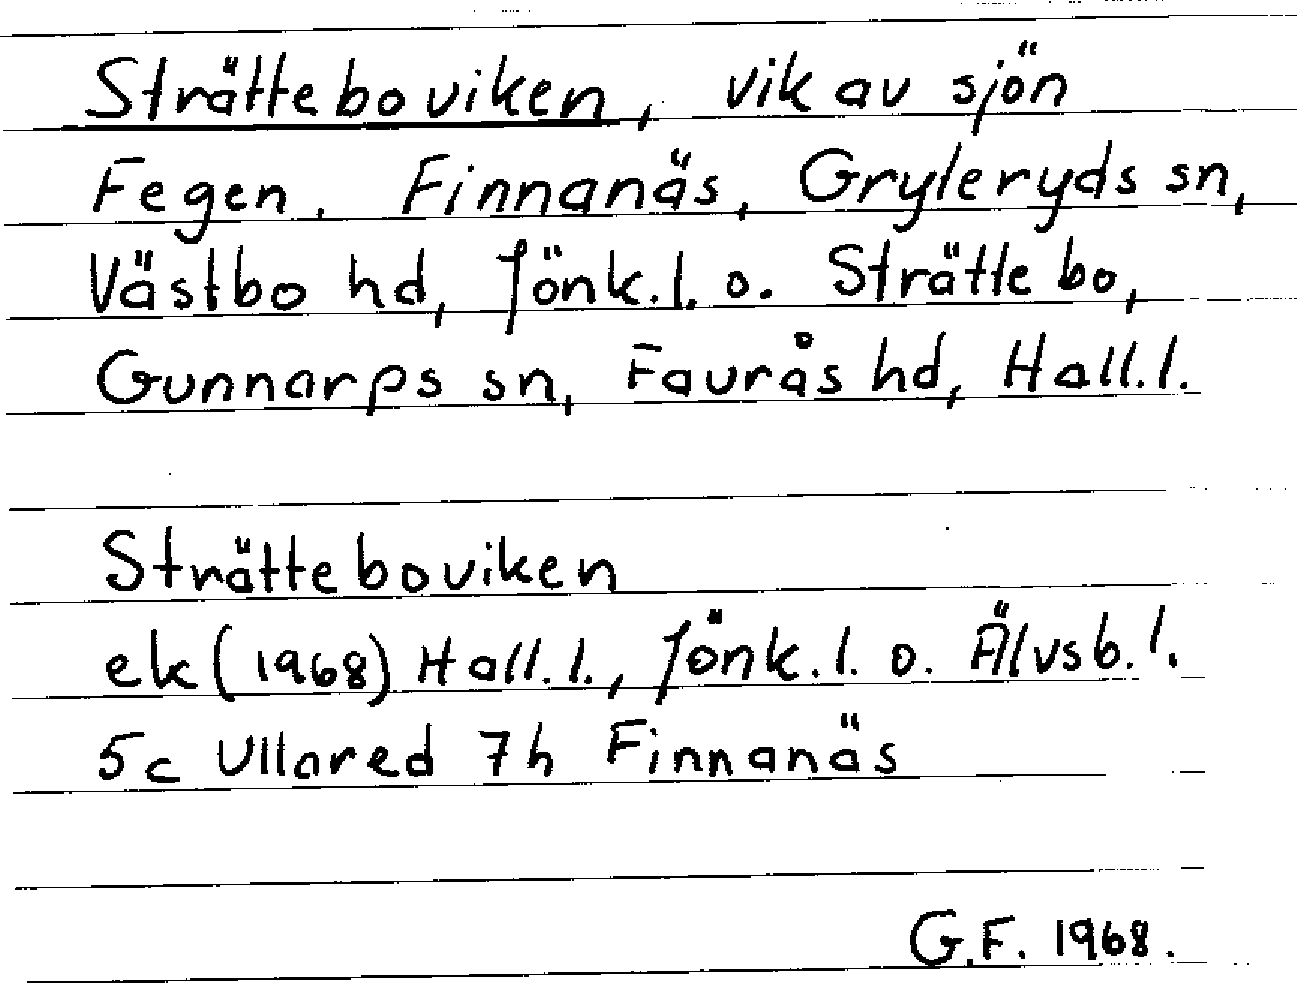 Strätteboviken, vik av sjön
Fegen. Finnanäs, Gryleryds sn,
Västbo hd, Jönk.l. o. Strättebo,
Gunnarps sn, Faurås hd, Hall.l.
Strätteboviken
ek (1968) Hall.l., Jönk.l. o. Älvsb.l.
5c Ullared 7h Finnanäs
G.F. 1968.